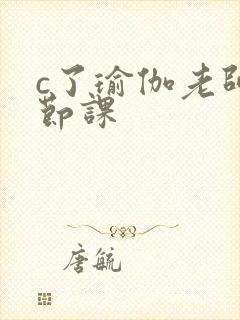 c了瑜伽老师
節課
唐毓